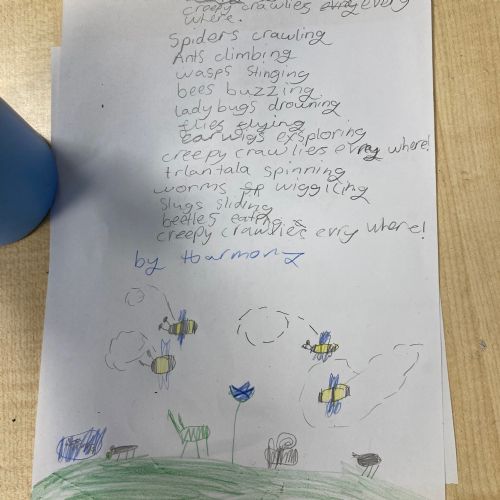 creepy crawlies evrey every
where.
Spiders crawling
Ants climbing
wasps stinging
bees buzzing
ladybugs drowning
flies flying
earwigs exsploring
creepy crawlies evray where!
trlantala spinning
worms wiggicing
Slugs sliding
beetles eating
creepy crawlies evry where!
by Harmony